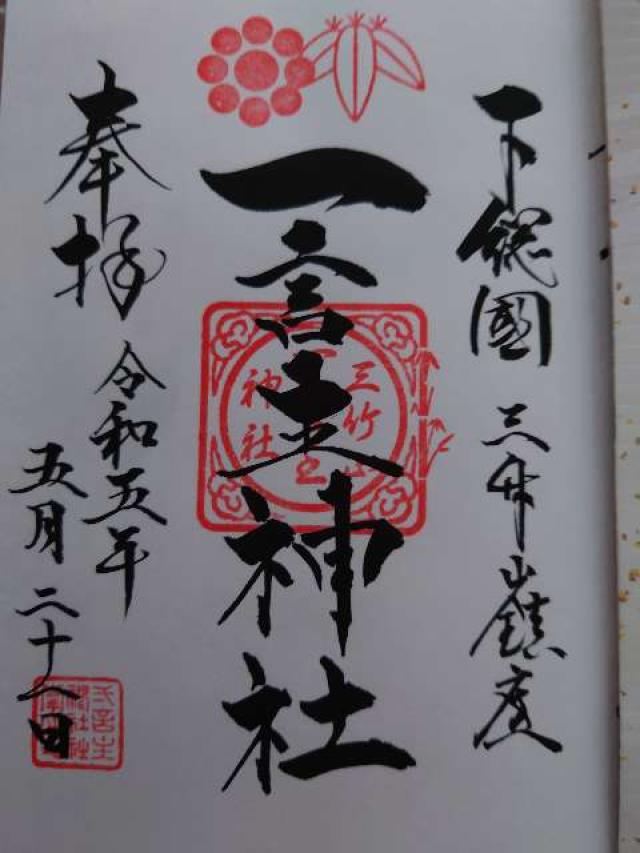 下総國 三竹山鎮座
一言主神社
三竹山
神社
奉拝
令和五年
五月二十八日